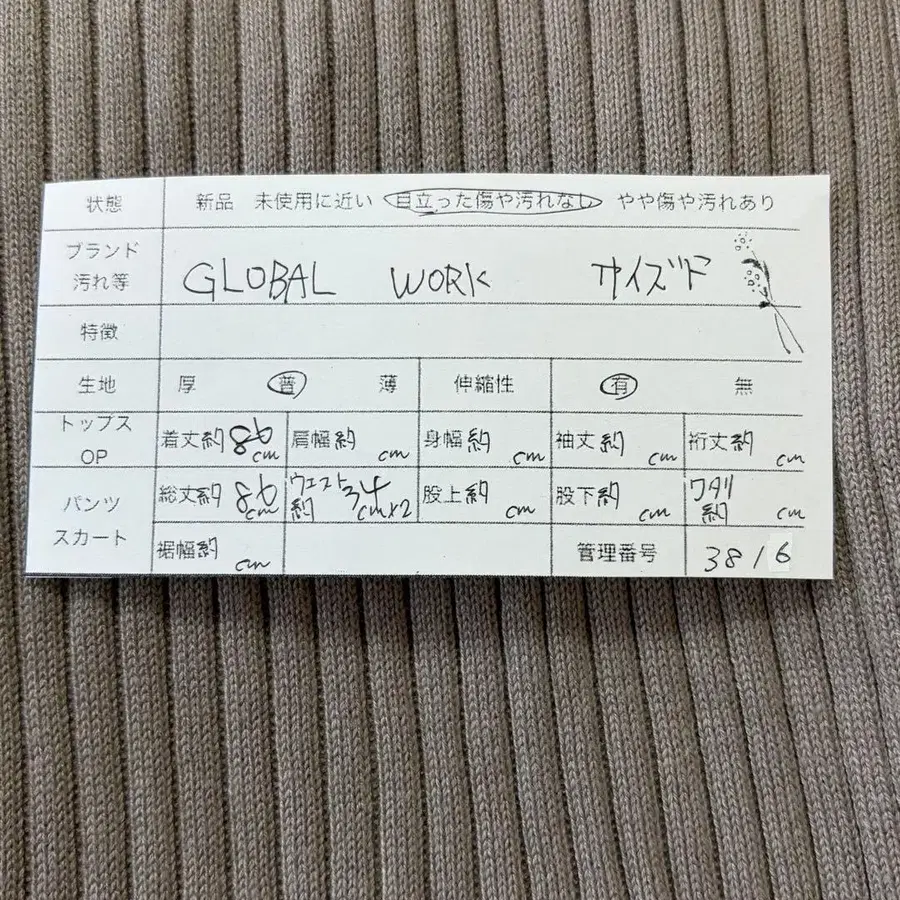 状態 新品 未使用に近い 目立った傷や汚れなし やや傷や汚れあり
ブランド
汚れ等 GLOBAL WORK サイズ
特徴
生地 厚 普 薄 伸縮性 有 無
トップス
OP 着丈約 cm 肩幅約 cm 身幅約 cm 袖丈約 cm 裄丈約 cm
パンツ
スカート 総丈約 86 cm ウエスト約 34 cm×2 股上約 cm 股下約 cm ワタリ約 cm
裾幅約 cm 管理番号 3816